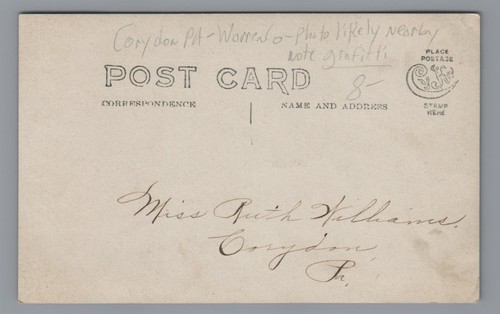 Corydon PA - Warren Co - photo likely nearby
note grafitti
POST CARD
8-
CORRESPONDENCE
NAME AND ADDRESS
PLACE
POSTAGE
STAMP
HERE
Miss Ruth Williams.
Corydon,
Pa.